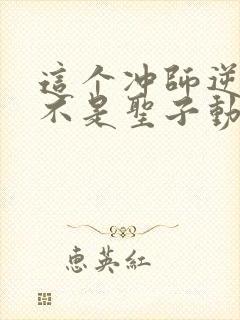 這个冲師逆
不是聖子動
惠英紅